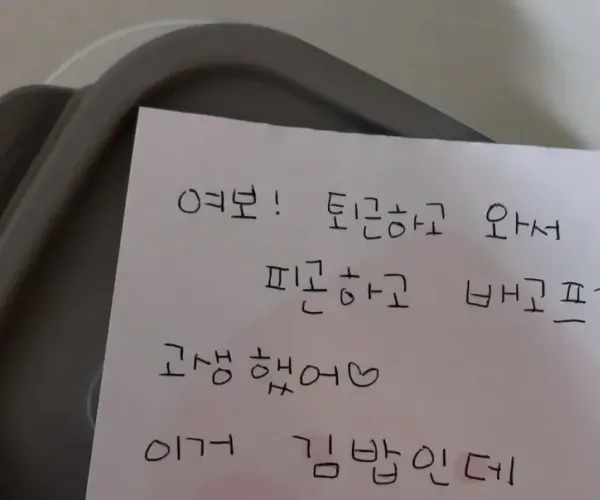 여보! 퇴근하고 와서
피곤하고
고생했어♡
이거 김밥인데